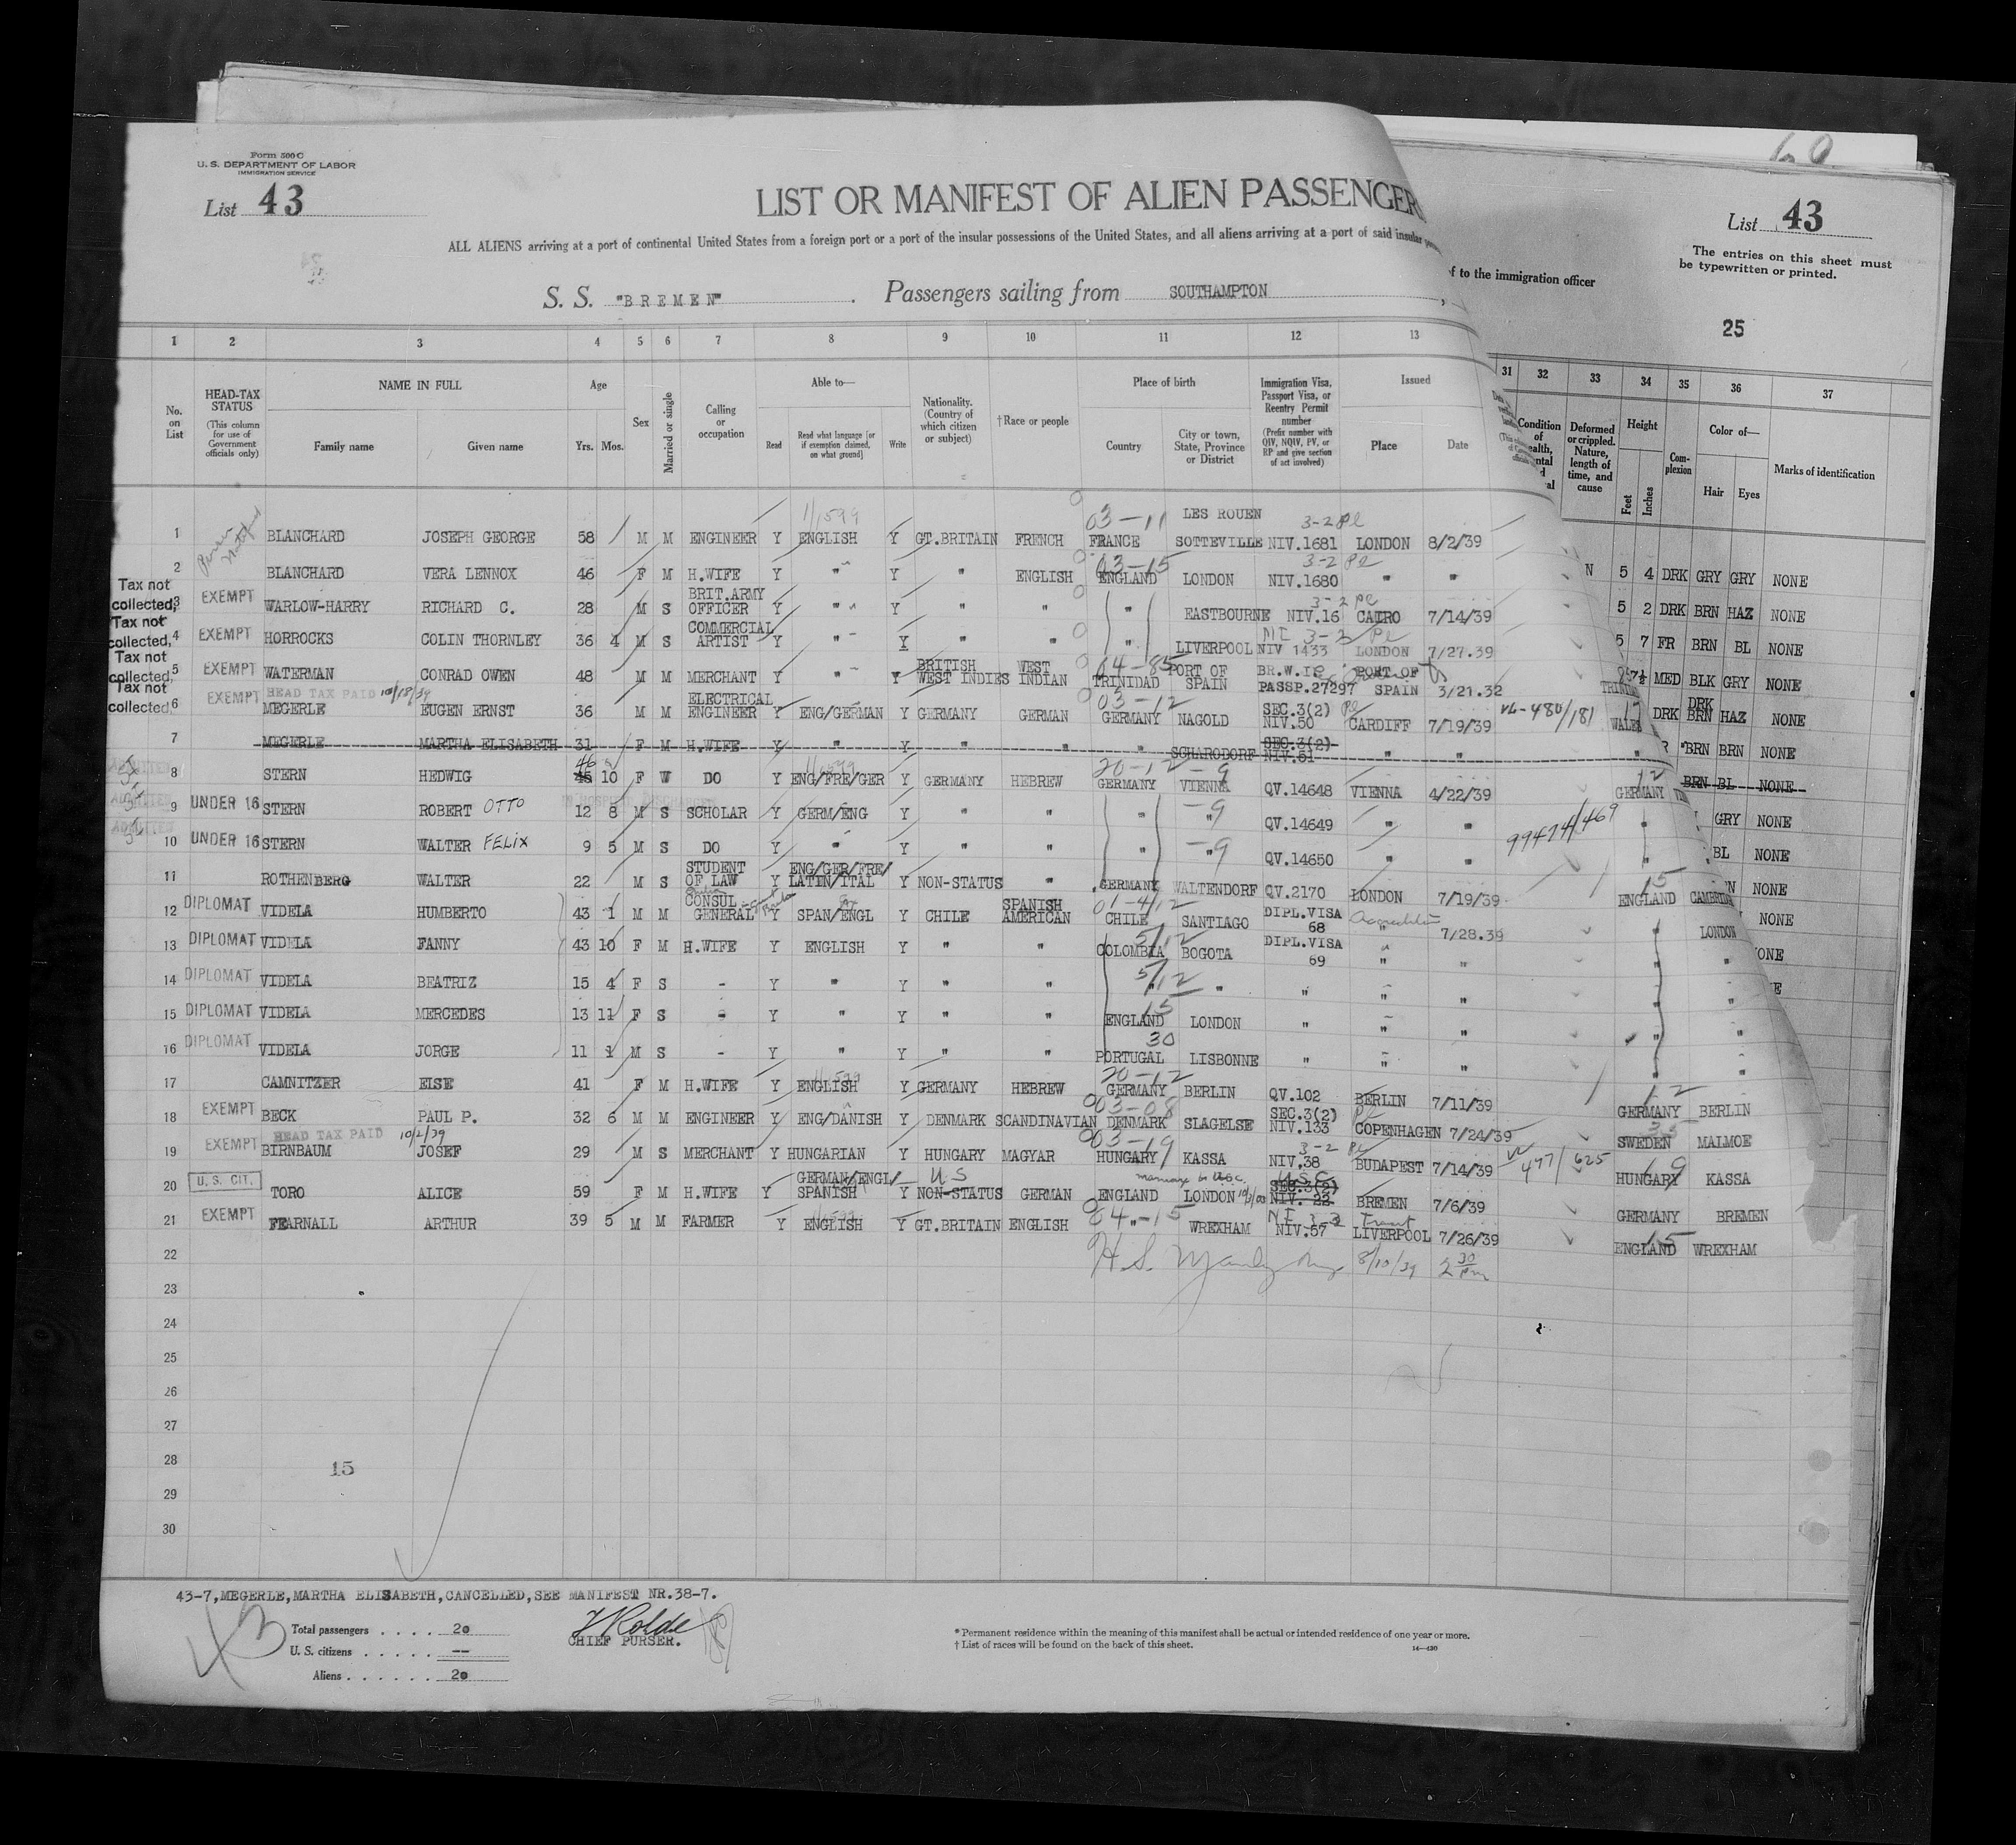 Form 500 C
U. S. DEPARTMENT OF LABOR
IMMIGRATION SERVICE
List 43
LIST OR MANIFEST OF ALIEN PASSENGER
ALL ALIENS arriving at a port of continental United States from a foreign port or a port of the insular possessions of the United States, and all aliens arriving at a port of said insular
S. S. "BREMEN" . Passengers sailing from SOUTHAMPTON ,
f to the immigration officer
List 43
The entries on this sheet must
be typewritten or printed.
25
1 2 3 4 5 6 7 8 9 10 11 12 13 31 32 33 34 35 36 37
No. on List
HEAD-TAX STATUS (This column for use of Government officials only)
NAME IN FULL Family name Given name
Age Yrs. Mos.
Sex
Married or single
Calling or occupation
Able to— Read Read what language [or if exemption claimed, on what ground] Write
Nationality. (Country of which citizen or subject)
†Race or people
Place of birth Country City or town, State, Province or District
Immigration Visa, Passport Visa, or Reentry Permit number (Prefix number with QIV, NQIV, PV, or RP and give section of act involved)
Issued Place Date
Condition of
Deformed or crippled. Nature, length of time, and cause
Height Feet Inches
Complexion
Color of— Hair Eyes
Marks of identification
1 BLANCHARD JOSEPH GEORGE 58 M M ENGINEER Y ENGLISH Y GT.BRITAIN FRENCH 03-11 FRANCE LES ROUEN SOTTEVILLE 3-2 NIV.1681 LONDON 8/2/39
2 BLANCHARD VERA LENNOX 46 F M H.WIFE Y " Y " ENGLISH 03-15 ENGLAND LONDON 3-2 NIV.1680 " "
Tax not collected, 3 EXEMPT WARLOW-HARRY RICHARD C. 28 M S BRIT.ARMY OFFICER Y " Y " " " EASTBOURNE 3-2 NIV.16 CAIRO 7/14/39
Tax not collected, 4 EXEMPT HORROCKS COLIN THORNLEY 36 4 M S COMMERCIAL ARTIST Y " Y " " " LIVERPOOL 3-2 NIV 1433 LONDON 7/27.39
Tax not collected, 5 EXEMPT WATERMAN CONRAD OWEN 48 M S MERCHANT Y " Y BRITISH WEST INDIES WEST INDIAN 04-85 TRINIDAD PORT OF SPAIN BR.W.I. PASSP.27297 PORT OF SPAIN 3/21.32
Tax not collected, 6 EXEMPT HEAD TAX PAID 10/18/39 MEGERLE EUGEN ERNST 36 M M ELECTRICAL ENGINEER Y ENG/GERMAN Y GERMANY GERMAN 03-12 GERMANY NAGOLD SEC.3(2) NIV.50 CARDIFF 7/19/39
7 MEGERLE MARTHA ELISABETH 31 F M H.WIFE Y " Y " " " SCHARODORF SEC.3(2) NIV.51 " "
8 STERN HEDWIG 46 10 F W DO Y ENG/FRE/GER Y GERMANY HEBREW 20-12 GERMANY VIENNA QV.14648 VIENNA 4/22/39
9 UNDER 16 STERN ROBERT OTTO 12 8 M S SCHOLAR Y GERM/ENG Y " " " " QV.14649 " "
10 UNDER 16 STERN WALTER FELIX 9 5 M S DO Y " Y " " " " QV.14650 " "
11 ROTHENBERG WALTER 22 M S STUDENT OF LAW Y ENG/GER/FRE/ LATIN/ITAL Y NON-STATUS " GERMANY WALTENDORF QV.2170 LONDON 7/19/39
12 DIPLOMAT VIDELA HUMBERTO 43 1 M M CONSUL GENERAL Y SPAN/ENGL Y CHILE SPANISH AMERICAN CHILE SANTIAGO DIPL.VISA 68 " 7/28.39
13 DIPLOMAT VIDELA FANNY 43 10 F M H.WIFE Y ENGLISH Y " " COLOMBIA BOGOTA DIPL.VISA 69 " "
14 DIPLOMAT VIDELA BEATRIZ 15 4 F S - Y " Y " " " " " " "
15 DIPLOMAT VIDELA MERCEDES 13 11 F S - Y " Y " " 15 ENGLAND LONDON " " "
16 DIPLOMAT VIDELA JORGE 11 1 M S - Y " Y " " 30 PORTUGAL LISBONNE " " "
17 CAMNITZER ELSE 41 F M H.WIFE Y ENGLISH Y GERMANY HEBREW 20-12 GERMANY BERLIN QV.102 BERLIN 7/11/39
18 EXEMPT BECK PAUL P. 32 6 M M ENGINEER Y ENG/DANISH Y DENMARK SCANDINAVIAN 03-08 DENMARK SLAGELSE SEC.3(2) NIV.133 COPENHAGEN 7/24/39
19 EXEMPT HEAD TAX PAID 10/2/39 BIRNBAUM JOSEF 29 M S MERCHANT Y HUNGARIAN Y HUNGARY MAGYAR 03-19 HUNGARY KASSA 3-2 NIV.38 BUDAPEST 7/14/39
20 U. S. CIT. TORO ALICE 59 F M H.WIFE Y GERMAN/ENGL/ SPANISH Y U.S NON-STATUS GERMAN ENGLAND LONDON SEC.3(2) NIV. 22 BREMEN 7/6/39
21 EXEMPT FEARNALL ARTHUR 39 5 M M FARMER Y ENGLISH Y GT.BRITAIN ENGLISH 04-15 " WREXHAM NIV.57 LIVERPOOL 7/26/39
22 8/10/39 2 30 pm
23
24
25
26
27
28
29
30
15
N 5 4 DRK GRY GRY NONE
5 2 DRK BRN HAZ NONE
5 7 FR BRN BL NONE
7½ MED BLK GRY NONE
480/181 WALES DRK DRK BRN HAZ NONE
" BRN BRN NONE
12 GERMANY BRN BL NONE
99474/469 " GRY NONE
" BL NONE
15 ENGLAND CAMBRIDGE NONE
" LONDON NONE
" "
" "
" "
12 GERMANY BERLIN
35 SWEDEN MALMOE
477/625 19 HUNGARY KASSA
GERMANY BREMEN
15 ENGLAND WREXHAM
43-7,MEGERLE,MARTHA ELISABETH,CANCELLED,SEE MANIFEST NR.38-7.
43
Total passengers . . . . 20
U. S. citizens . . . . . --
Aliens . . . . . . 20
CHIEF PURSER.
* Permanent residence within the meaning of this manifest shall be actual or intended residence of one year or more.
† List of races will be found on the back of this sheet.
14—430